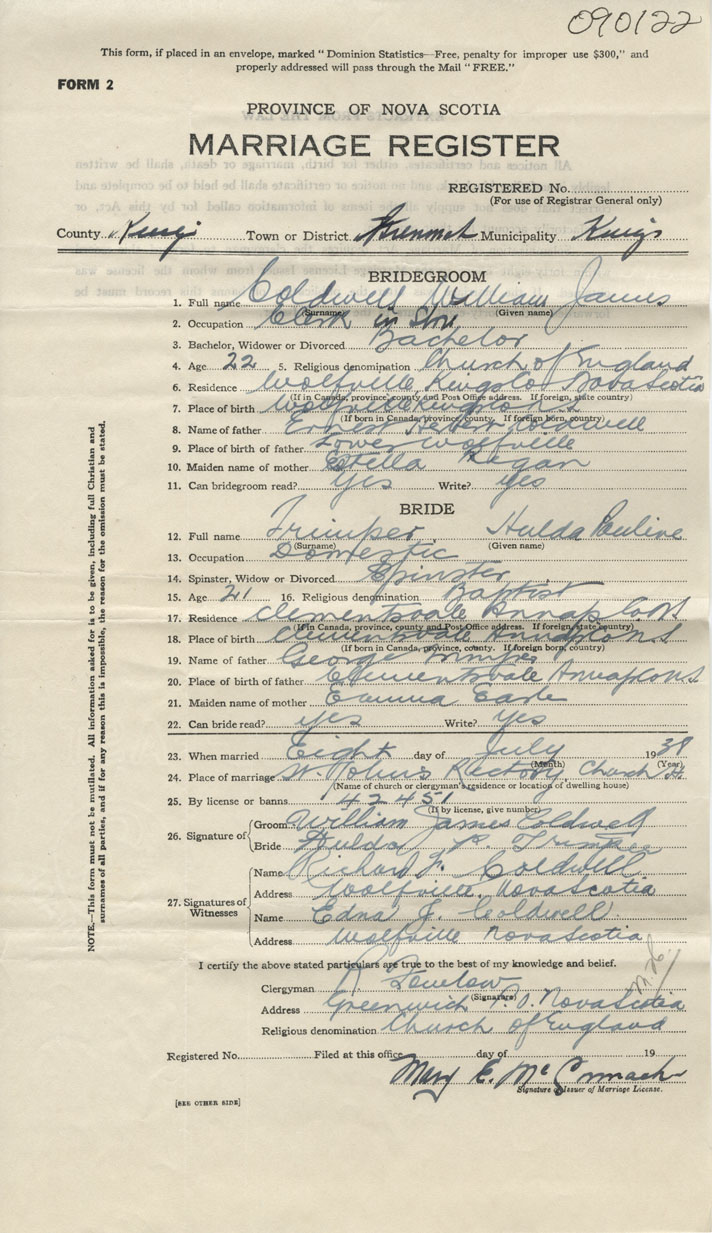 090122
This form, if placed in an envelope, marked "Dominion Statistics—Free, penalty for improper use $300," and
properly addressed will pass through the Mail "FREE."
FORM 2
PROVINCE OF NOVA SCOTIA
MARRIAGE REGISTER
REGISTERED No.
(For use of Registrar General only)
County Kings Town or District Municipality Kings
BRIDEGROOM
1. Full name Coldwell William James
(Surname) (Given name)
2. Occupation Clerk in Store
3. Bachelor, Widower or Divorced Bachelor
4. Age 22 5. Religious denomination Church of England
6. Residence Wolfville Kings Co Nova Scotia
(If in Canada, province, county and Post Office address. If foreign, state country)
7. Place of birth Wolfville Kings Co N.S.
(If born in Canada, province, county. If foreign born, country)
8. Name of father Ernest Coldwell
9. Place of birth of father Lower Wolfville
10. Maiden name of mother Estella Regan
11. Can bridegroom read? Yes Write? yes
BRIDE
12. Full name Trimper Hulda Pauline
(Surname) (Given name)
13. Occupation Domestic
14. Spinster, Widow or Divorced Spinster
15. Age 21 16. Religious denomination Baptist
17. Residence Clementsvale Annap Co N.S
(If in Canada, province, county and Post Office address. If foreign, state country)
18. Place of birth Clementsvale Annap Co N S
(If born in Canada, province, county. If foreign born, country)
19. Name of father George Trimper
20. Place of birth of father Clementsvale Annap Co N S
21. Maiden name of mother Emma
22. Can bride read? yes Write? Yes
23. When married Eight day of July 1938
(Month) (Year)
24. Place of marriage St. John's Rectory, Church St.
(Name of church or clergyman's residence or location of dwelling house)
25. By license or banns 42451
(If by license, give number)
26. Signature of
Groom William James Coldwell
Bride Hulda P. Trimper
27. Signatures of Witnesses
Name Richard F. Coldwell
Address Wolfville, Nova Scotia
Name Edna J. Coldwell
Address Wolfville Nova Scotia
I certify the above stated particulars are true to the best of my knowledge and belief.
Clergyman
(Signature)
Address Greenwich P.O. Nova Scotia
Religious denomination Church of England
Registered No. Filed at this office day of 19
Mary E. McCormack
Signature of Issuer of Marriage License.
[SEE OTHER SIDE]
NOTE.—This form must not be mutilated. All information asked for is to be given, including full Christian and
surnames of all parties, and if for any reason this is impossible, the reason for the omission must be stated.